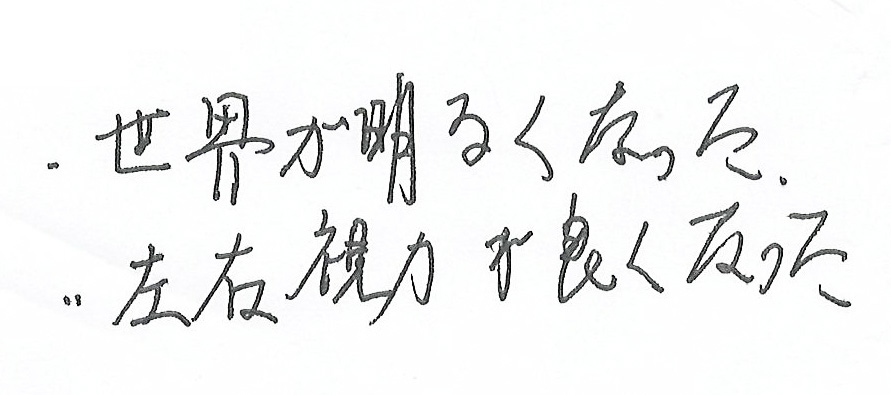 ・世界が明るくなった.
・・左右視力が良くなった